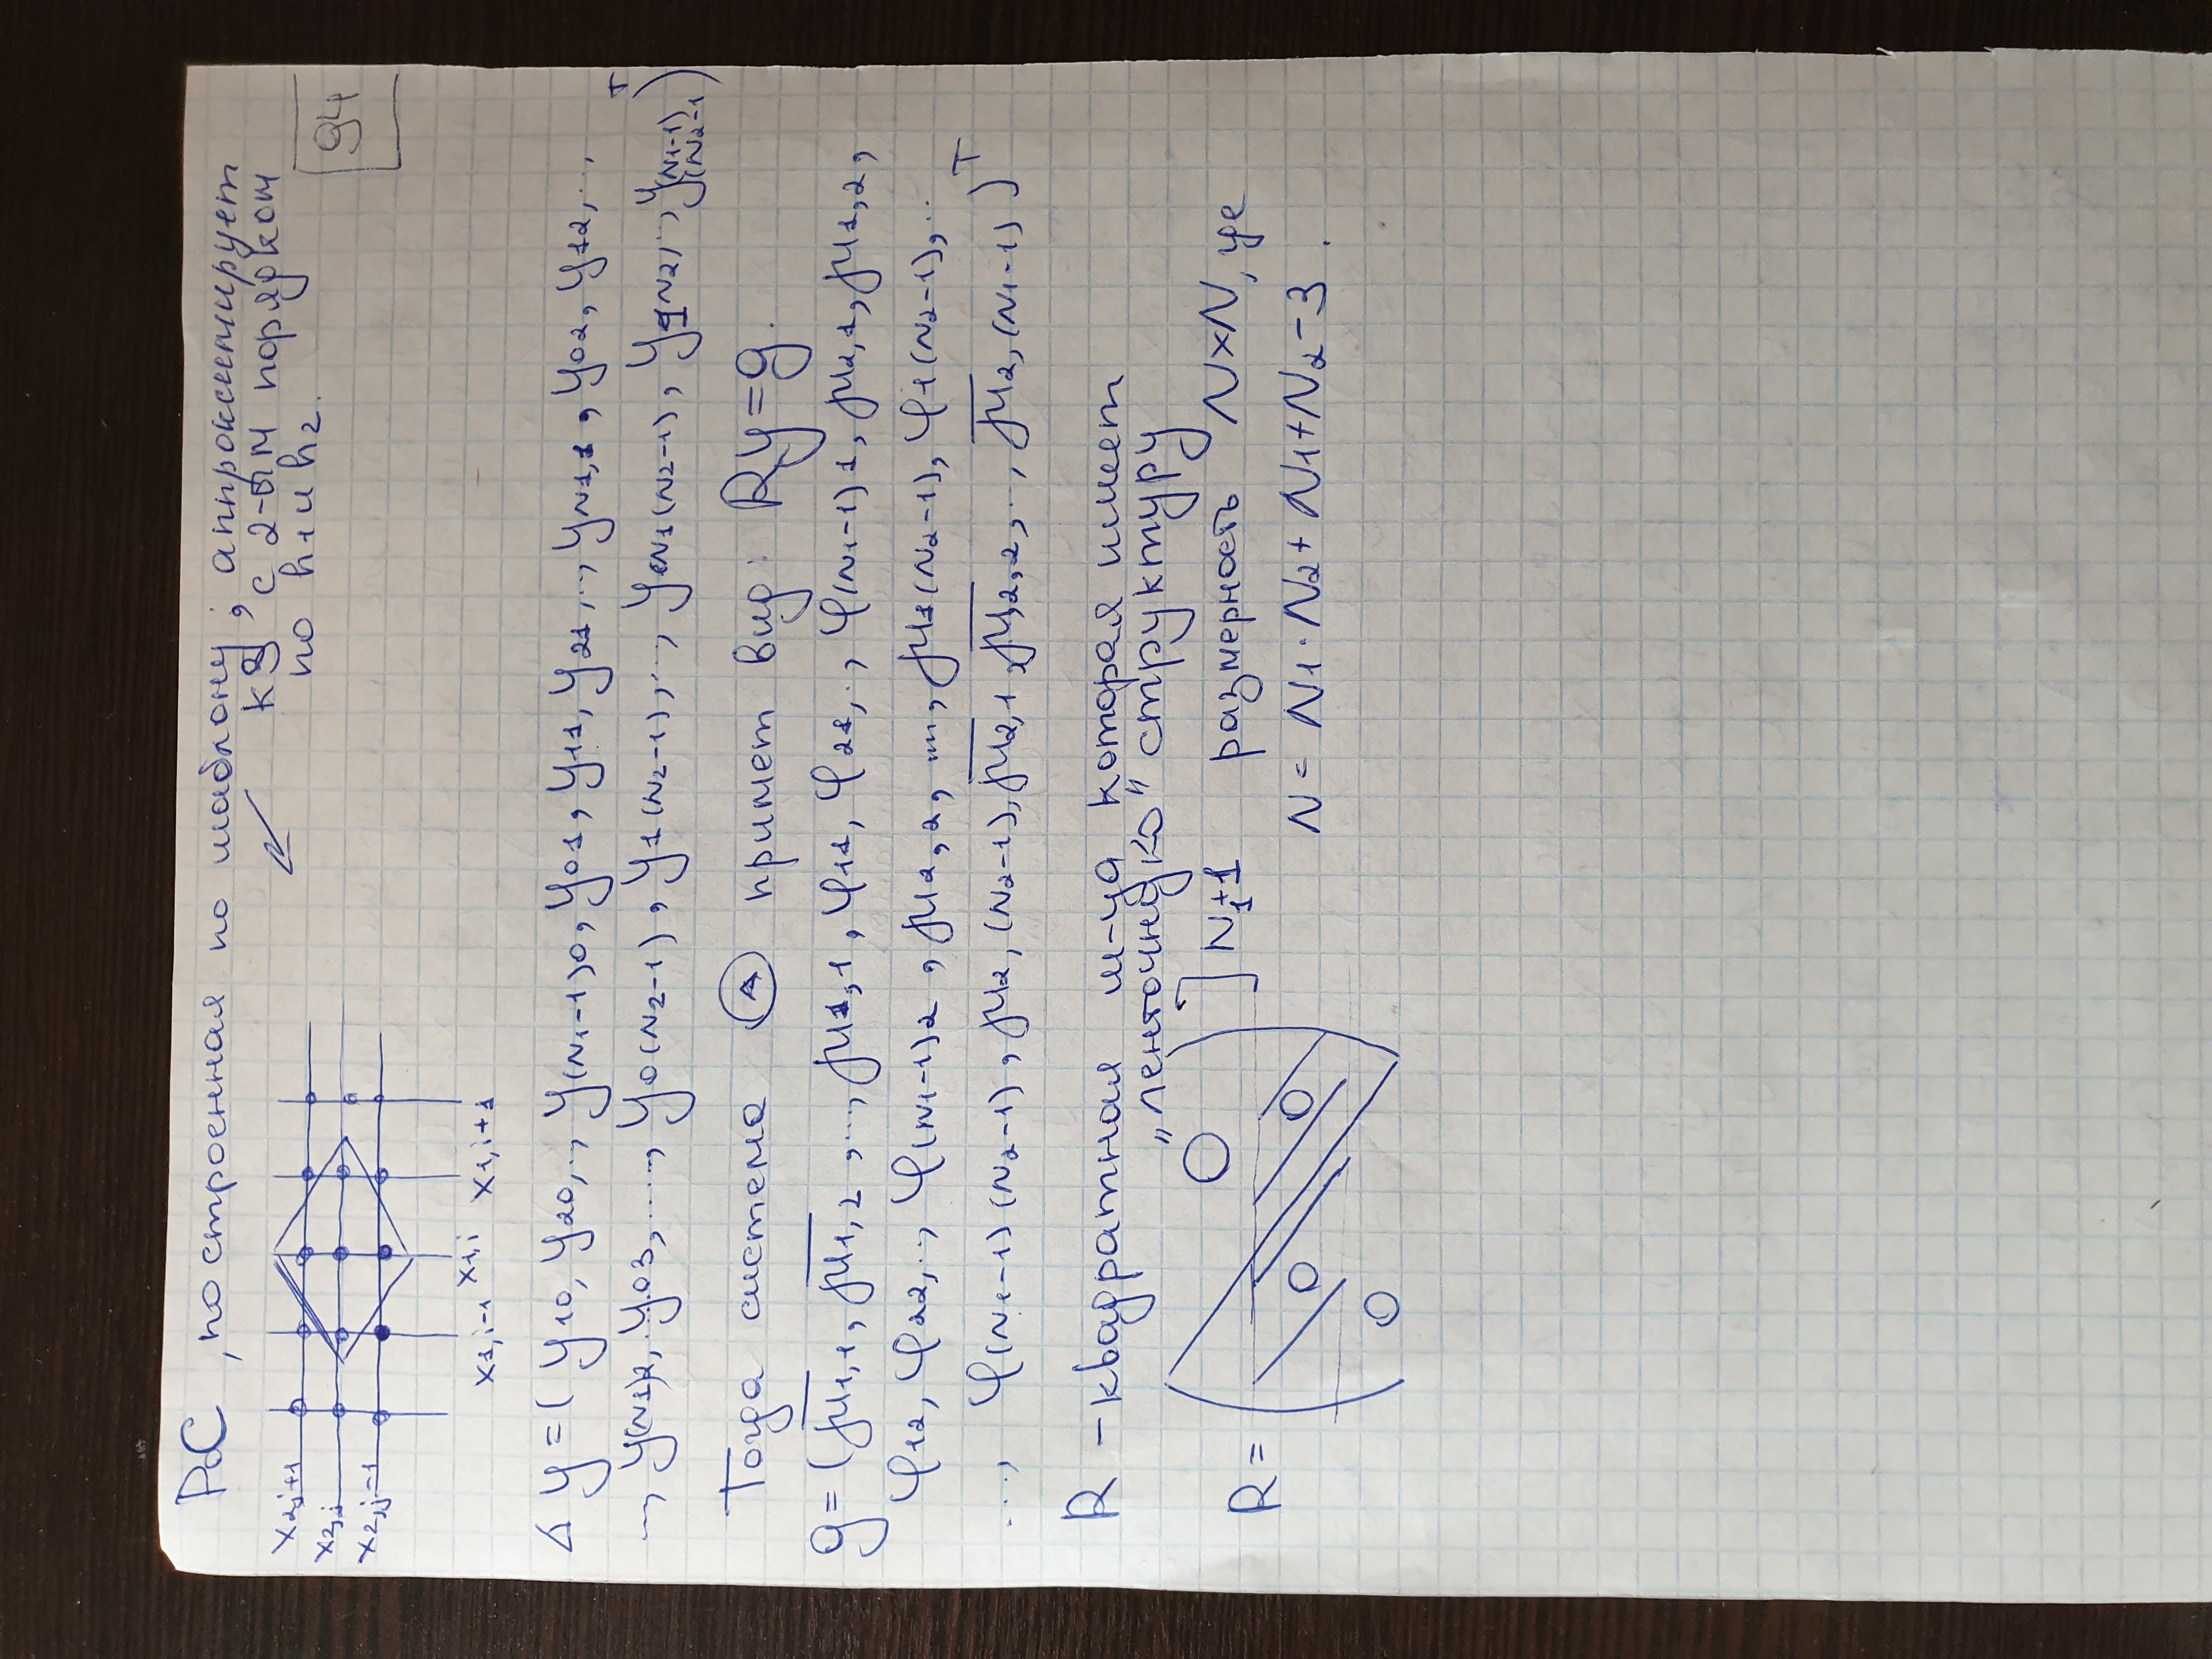 РС, построенная по шаблону; аппроксимирует
к (2), с 2-ым порядком
по h₁ и h₂.
94
x₂,ⱼ₊₁
x₂,ⱼ
x₂,ⱼ₋₁
x₁,ᵢ₋₁ x₁,ᵢ x₁,ᵢ₊₁
Δ y = (y₁₀, y₂₀, ..., y(N₁-1)0, y₀₁, y₁₁, y₂₁, ..., yN₁,₁, y₀₂, y₁₂, ...,
..., y(N₁)₂, y₀₃, ......, y₀(N₂-1), y₁(N₂-1), ..., yN₁(N₂-1), y₁N₂, ..., y(N₁-1)(N₂-1))ᵀ
Тогда система (A) примет вид: Ry=g.
g = (μ̅₁,₁, μ̅₁,₂, ..., μ₁,₁, φ₁₁, φ₂₁, ..., φ(N₁-1)₁, μ₂,₁, μ₁,₂,
φ₁₂, φ₂₂, ..., φ(N₁-1)₂, μ₂,₂, ..., μ₁(N₂-1), φ₁(N₂-1), ...
..., φ(N₁-1)(N₂-1), μ₂,(N₂-1), μ̅₂,₁, μ̅₂,₂, ..., μ̅₂,(N₁-1))ᵀ
R - квадратная м-ца которая имеет
"ленточную" структуру
R = 0 0 0 0 ] N₁+1 размерность N×N, где
N = N₁·N₂ + N₁+N₂-3.